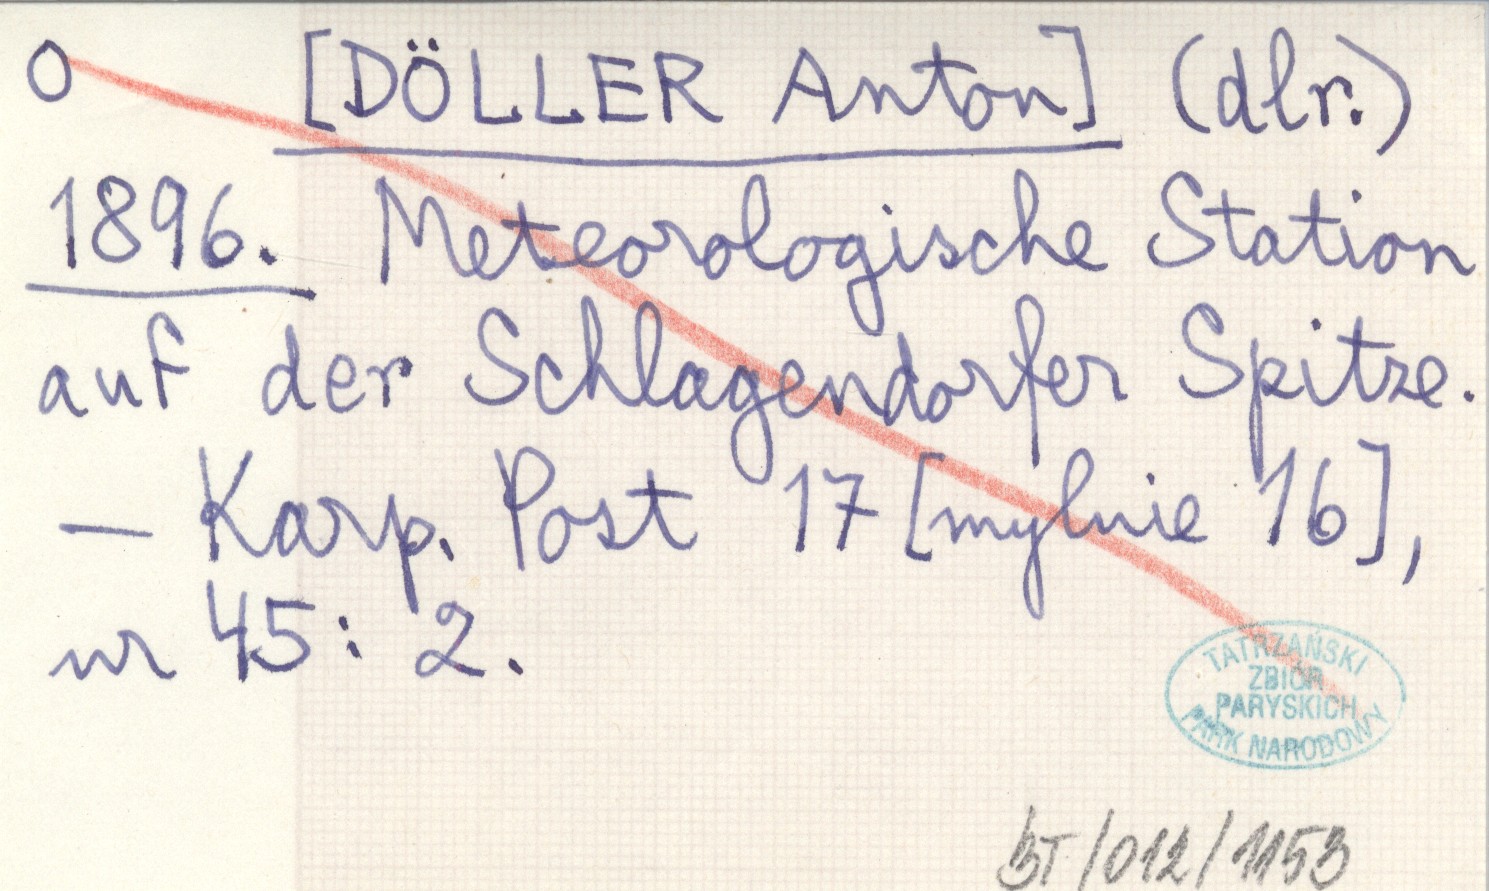 O [DÖLLER Anton] (dlr.)
1896. Meteorologische Station
auf der Schlagendorfer Spitze.
— Karp. Post 17 [mylnie 16],
nr 45: 2.
TATRZAŃSKI
ZBIÓR
PARYSKICH
PARK NARODOWY
BT/012/1153